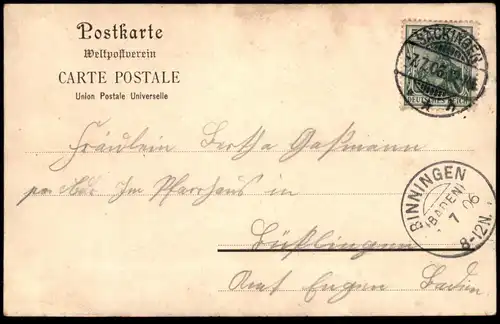 Postkarte
Weltpostverein
CARTE POSTALE
Union Postale Universelle
SÄCKINGEN
7.7.06
DEUTSCHES REICH
Fräulein Bertha Gaßmann
Im Pfarrhaus in
Büßlingen
Amt Engen Baden
BINNINGEN
(BADEN)
7 06
8-12N.